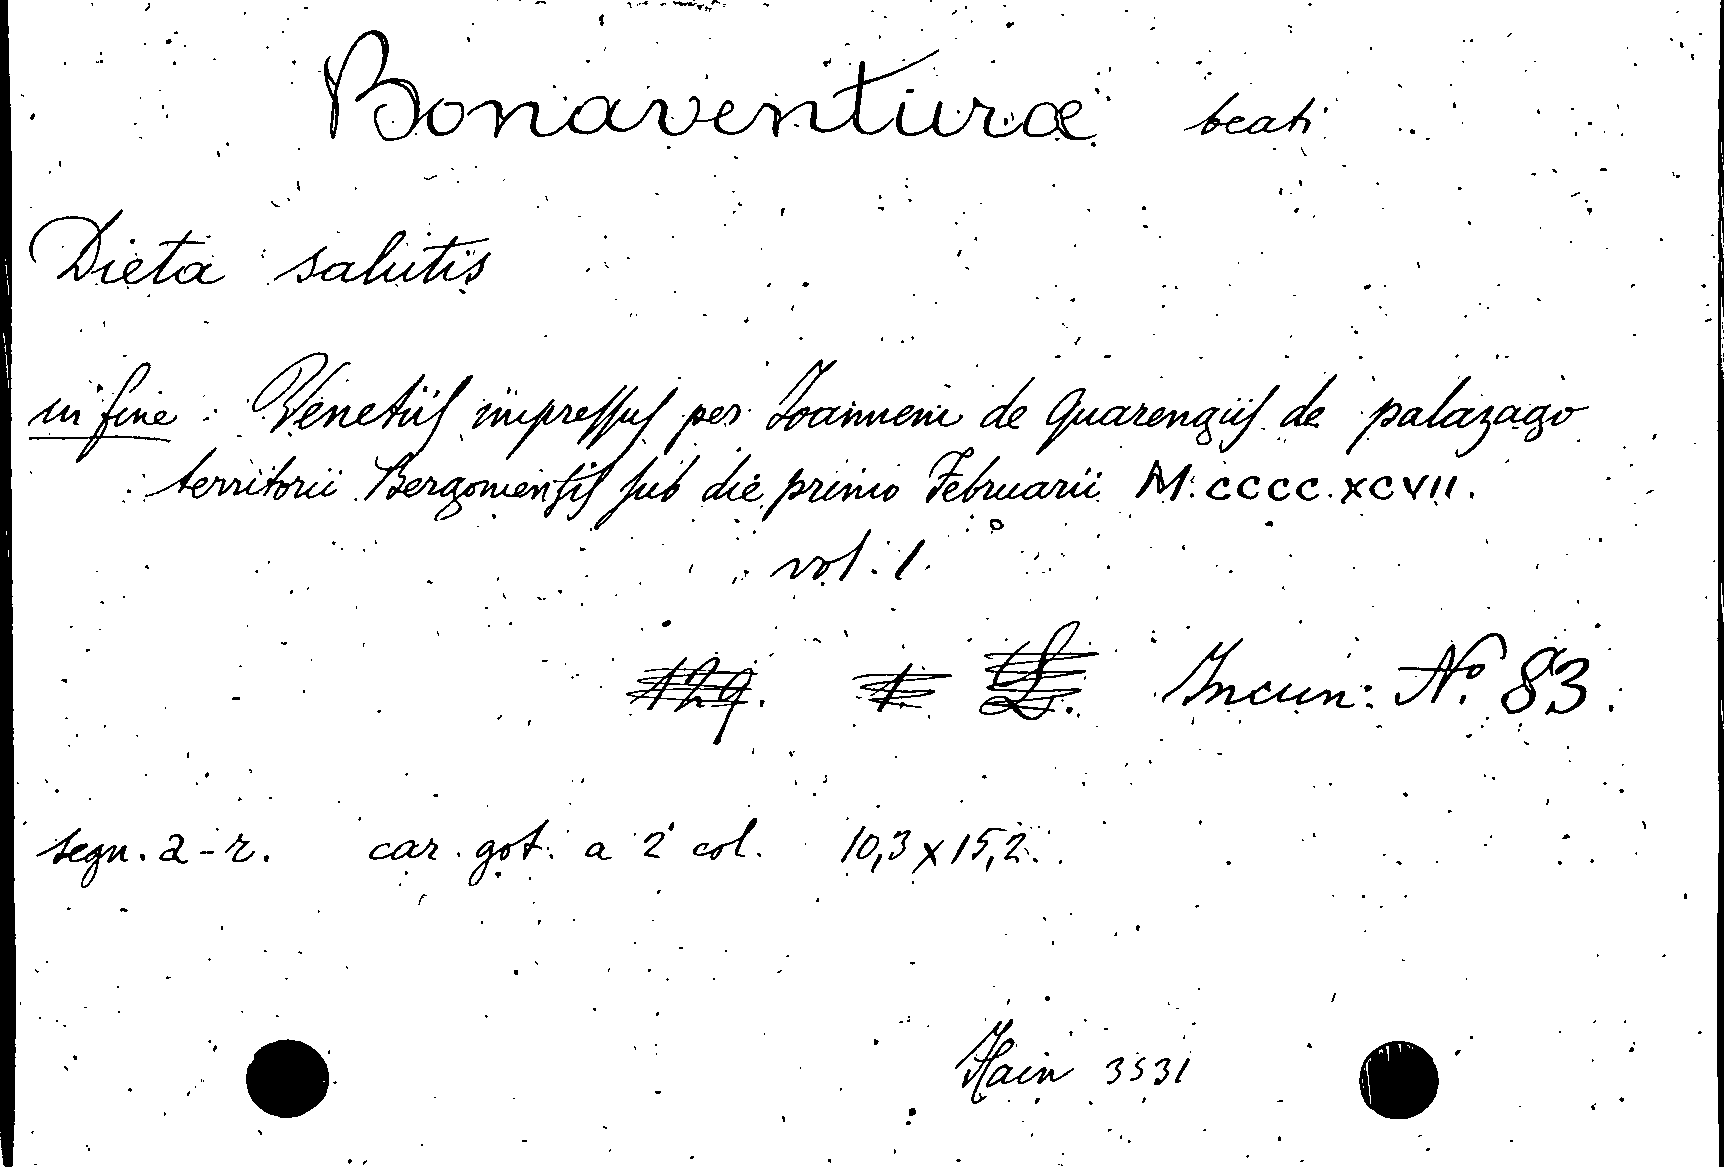 Bonaventuræ beati
Dieta salutis
in fine : Venetiiſ impreſſuſ per Ioannem de Quarengiiſ de palazago
territorii Bergomenſiſ ſub die primo Februarii M.CCCC.XCVII.
vol. 1.
129. 1. L. Incun: Nº 83.
segn. a-r. car. got. a 2 col. 10,3 x 15,2.
Hain 3531